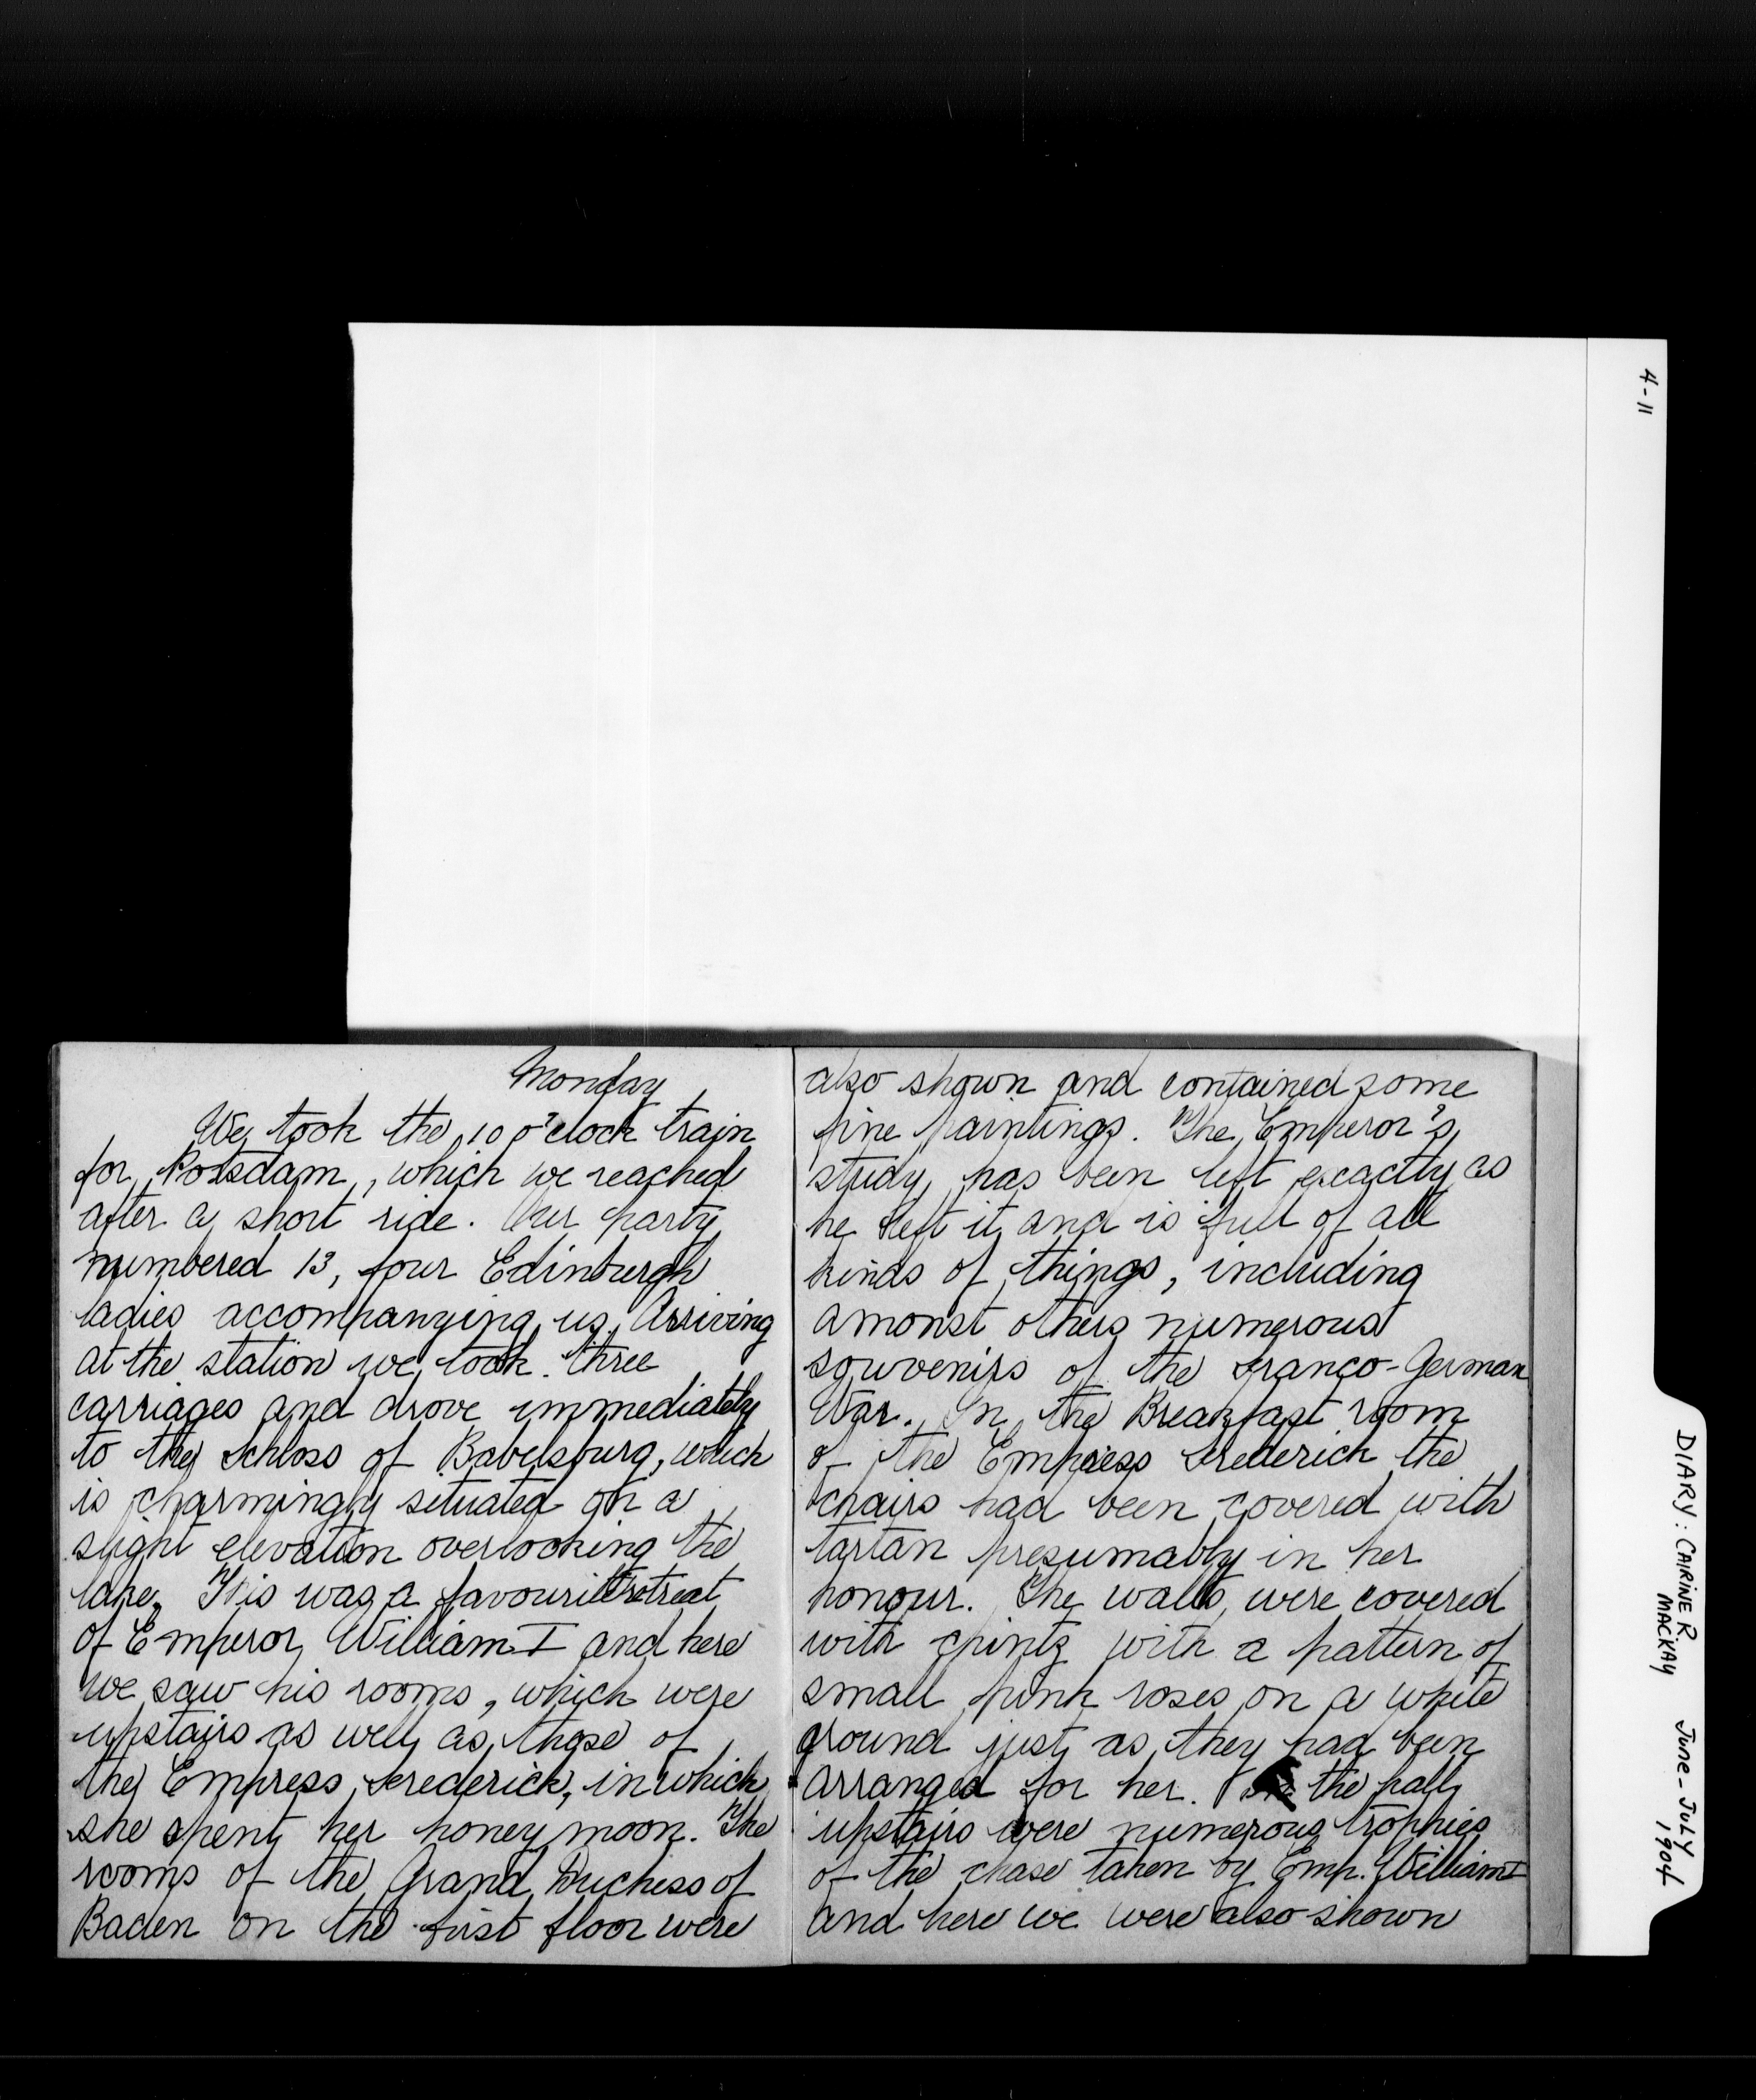 4-11
DIARY: CAIRINE R. MACKAY JUNE-JULY 1904
Monday
We took the 10 o'clock train
for Potsdam, which we reached
after a short ride. Our party
numbered 13, four Edinburgh
ladies accompanying us. Arriving
at the station we took three
carriages and drove immediately
to the Schloss of Babelsburg, which
is charmingly situated on a
slight elevation overlooking the
lake. This was a favourite retreat
of Emperor William I and here
we saw his rooms, which were
upstairs as well as those of
the Empress Frederick, in which
she spent her honey moon. The
rooms of the Grand Duchess of
Baden on the first floor were
also shown and contained some
fine paintings. The Emperor's
study has been left exactly as
he left it and is full of all
kinds of things, including
amonst others numerous
souvenirs of the Franco-German
War. In the Breakfast room
of the Empress Frederick the
chairs had been covered with
tartan presumably in her
honour. The walls were covered
with chintz with a pattern of
small pink roses on a white
ground just as they had been
arranged for her. In the hall
upstairs were numerous trophies
of the chase taken by Emp. William I
and here we were also shown